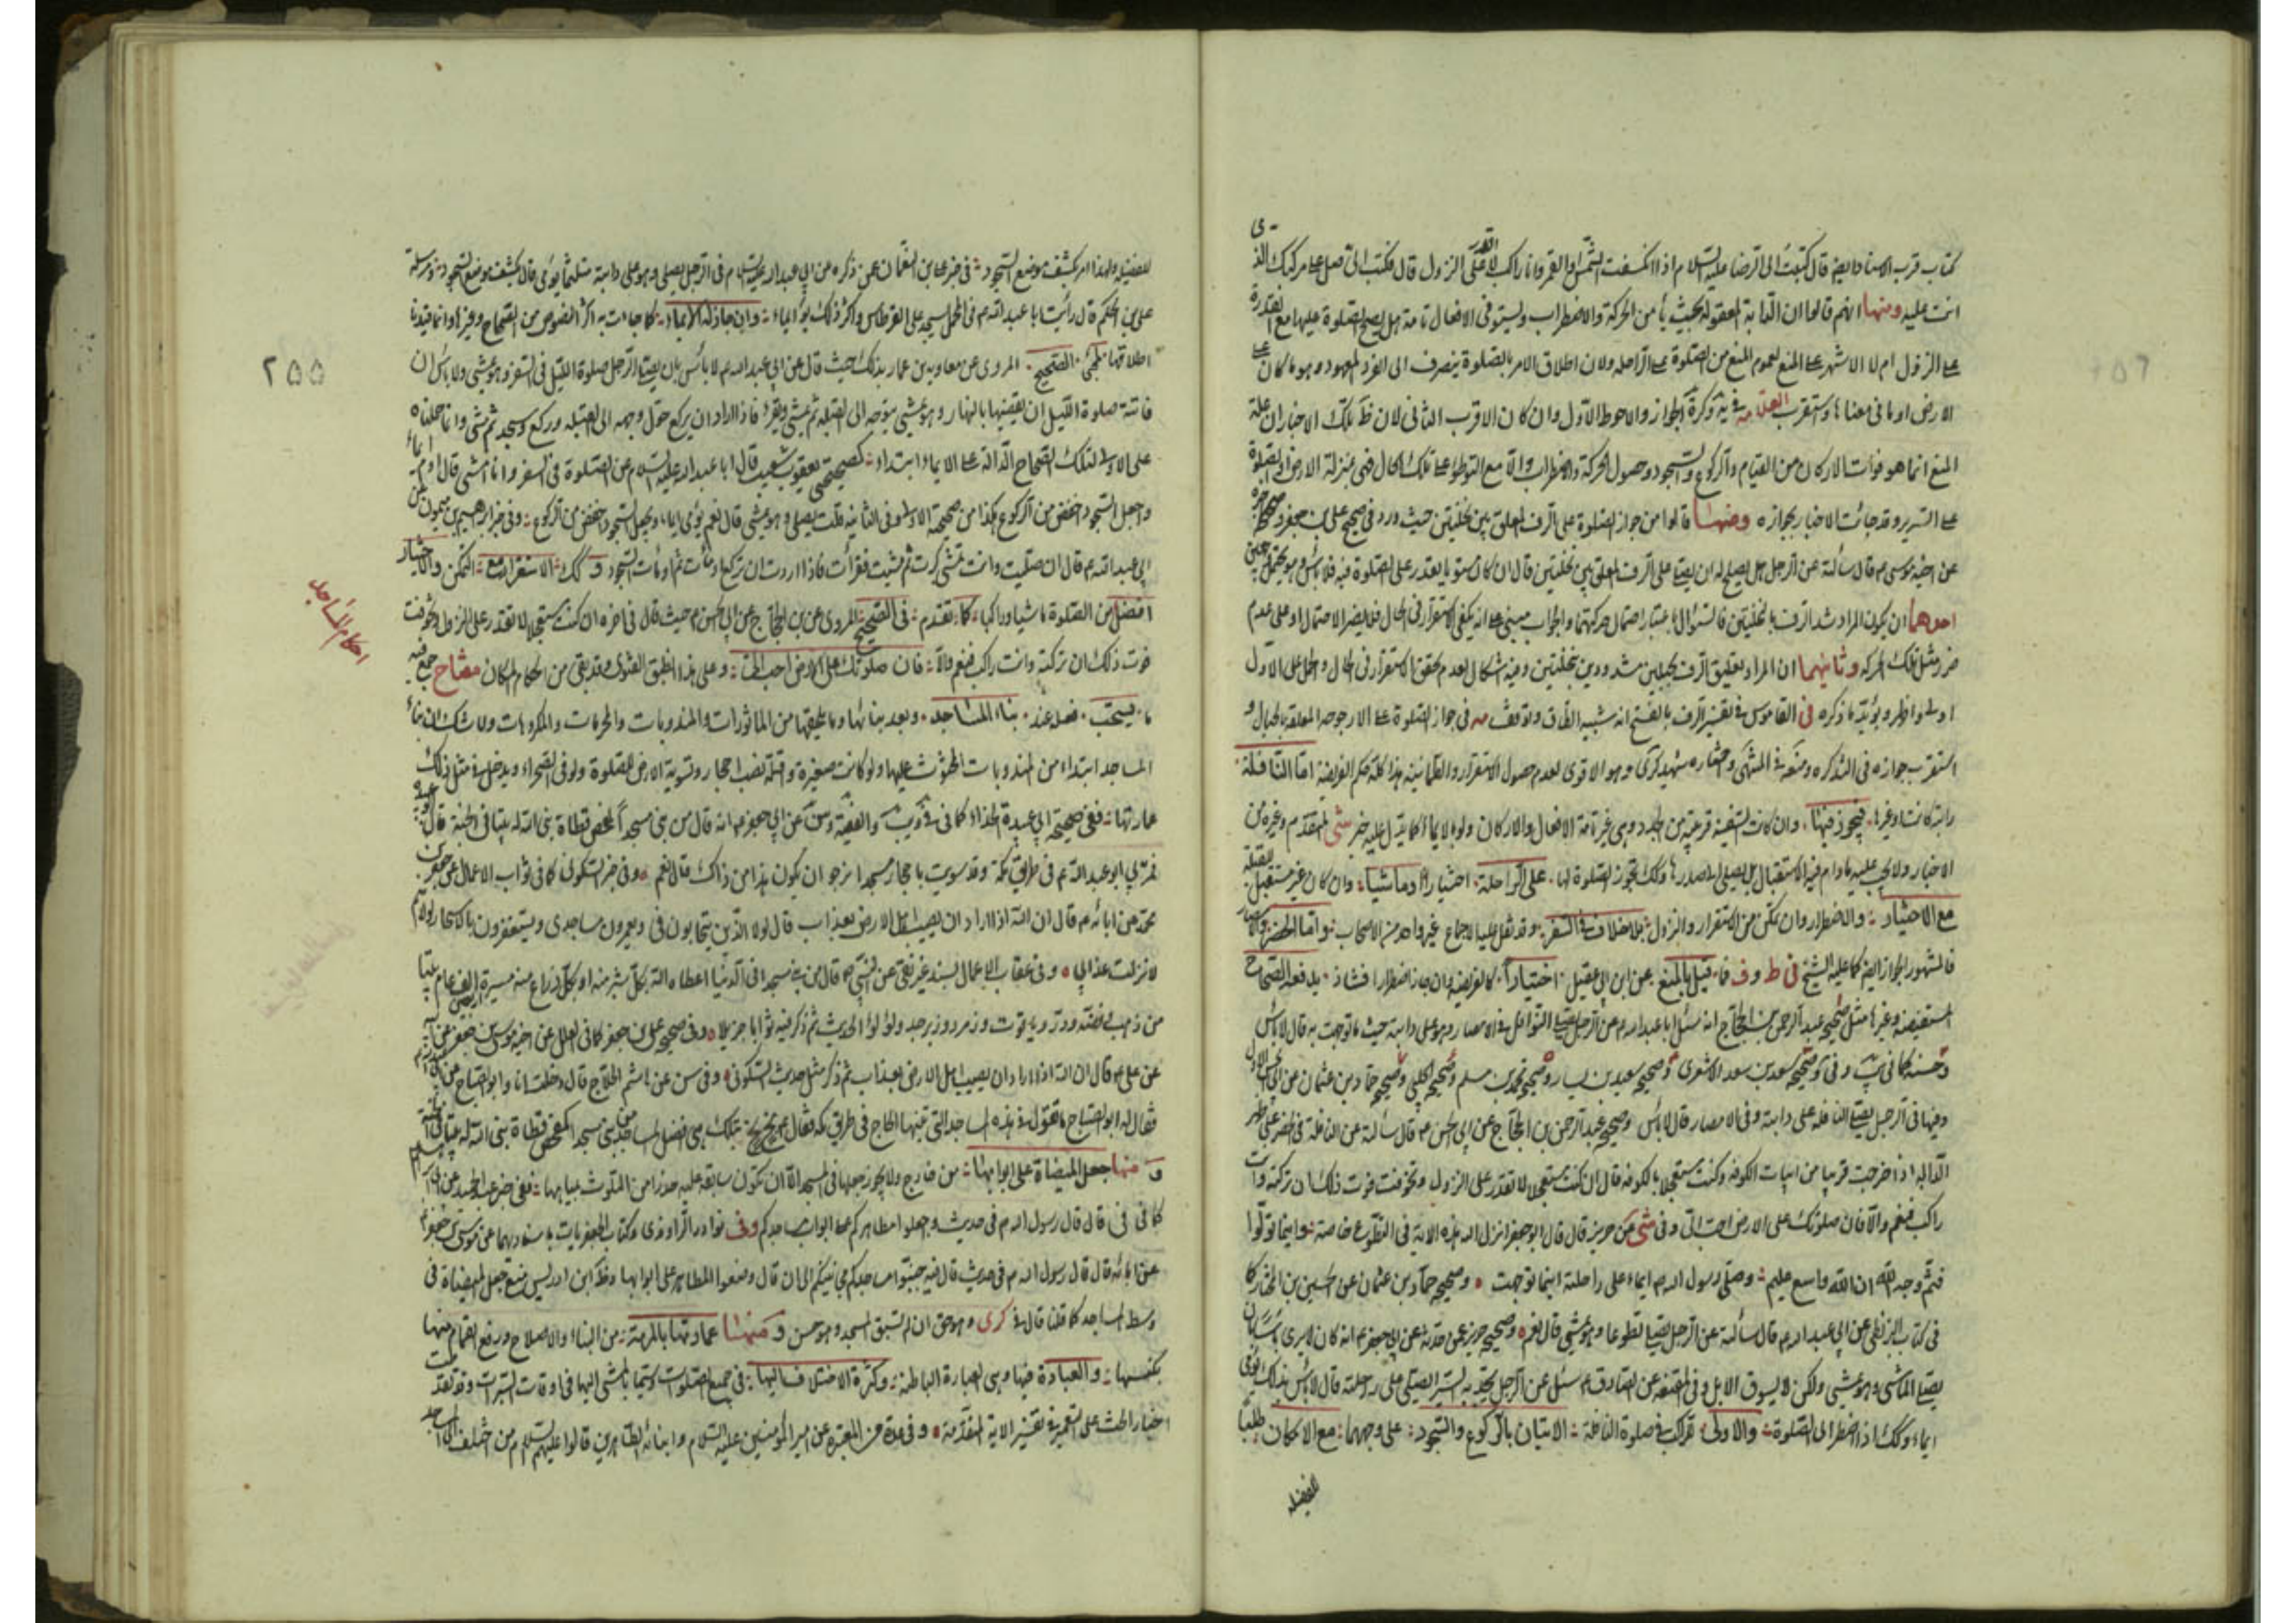 كتاب قرب الاسناد ايضا قال كتبت الى الرضا عليه السلام اذا انكسفت الشمس او القمر وانا راكب لا اقدر على النزول قال فكتب الى صل على مركبك الذى
انت عليه ومنها انهم قالوا ان الدابة المعقولة بحيث يأمن الحركة والاضطراب ويستوفى الافعال تامة هل يصح الصلوة عليها مع القدرة
على النزول ام لا الاشهر على المنع لعموم المنع من الصلوة على الراحلة ولان اطلاق الامر بالصلوة ينصرف الى الفرد المعهود وهو ما كان على
الارض او ما فى معناها واستقرب العلامة فى الجواز والاحوط الاول وان كان الاقرب الثانى لان تلك الاخبار ان علة
المنع انما هو فوات الاركان من القيام والركوع والسجود وحصول الحركة والاضطراب والا مع التوطؤ على تلك الحال فهى بمنزلة الارض والصلوة
على السرير وقد جائت الاخبار بجوازه ومنها ما قالوا من جواز الصلوة على الرف المعلق بين نخلتين حيث ورد فى صحيح على بن جعفر
عن اخيه موسى ع قال سألته عن الرجل هل يصلح له ان يصلى على الرف المعلق بين نخلتين قال ان كان مستويا يقدر على الصلوة فيه فلا بأس وهو يحتمل معنيين
احدهما ان يكون المراد شد الرف بالنخلتين فالسؤال باعتبار احتمال حركتهما والجواب مبنى على انه يكفى الاستقرار فى الحال فلا يضر الاحتمال او على عدم
ضرر مثل تلك الحركة وثانيهما ان المراد تعليق الرف بحبلين مشدودين بنخلتين وفيه اشكال لعدم تحقق الاستقرار فى الحال والحمل على الاول
اولى واظهر ويؤيده ما ذكره فى القاموس فى تفسير الرف بالفتح انه شبيه الطاق وتوقف مه فى جواز الصلوة على الارجوحة المعلقة بالحبال و
استقرب جوازه فى التذكره ومنعه فى المنتهى واختاره شهيد كرى وهو الاقوى لعدم حصول الاستقرار والطمانينه هذا كله حكم الفريضة اما النافلة
راتبة كانت او غيرها فيجوز فيها وان كانت السفينة قريبة من الجدد وهى غير تامة الافعال والاركان ولو بالايماء كما يدل عليه خبر المتقدم وغيره من
الاخبار ولا يجب عليه ما دام فيها الاستقبال بل يصلى الى صدرها وكك تجوز الصلوة لها على الراحلة اختيارا وماشيا وان كان غير مستقبل القبلة
مع الاختيار والاضطرار وان تمكن من الاستقرار والنزول بلا خلاف فى السفر وقد نقل عليه الاجماع غير واحد من الاصحاب واما الحضر
فالمشهور الجواز ايضا كما عليه الشيخ فى ط وف فما قيل بالمنع عن ابن ابى عقيل اختيارا كالفريضة وان جاز اضطرارا فشاذ يدفعه الصحاح
المستفيضه وغيرها مثل صحيح عبد الرحمن بن الحجاج انه سئل ابا عبد الله م عن الرجل يصلى النوافل فى الامصار وهو على دابته حيث ما توجهت به قال لا بأس
وحسنه كما فى يب وفى صحيحة سعد بن سعد الاشعرى وصحيح سعيد بن يسار وصحيح محمد بن مسلم وصحيح الحلبى وصحيح حماد بن عثمان عن ابى الحسن الاول
وفيها فى الرجل يصلى النافلة على دابته وفى الامصار قال لا بأس وصحيح عبد الرحمن بن الحجاج عن ابى الحسن ع قال سألته عن النافلة فى الحضر على ظهر
الدابة اذا خرجت قريبا من ابيات الكوفه وكنت مستعجلا بالكوفه قال ان كنت مستعجلا لا تقدر على النزول وتخوفت فوت ذلك ان تركته وانت
راكب فنعم والا فان صلوتك على الارض احب الى وفى عن حريز قال قال ابو جعفر انزل الله هذه الاية فى التطوع خاصة واينما تولوا
فثم وجه الله ان الله واسع عليم وصلى رسول الله م ايماء على راحلته اينما توجهت وصحيح حماد بن عثمان عن الحسين بن المختار كما
فى كتاب البزنطى عن ابى عبد الله م قال سألته عن الرجل يصلى تطوعا وهو يمشى قال نعم وصحيح حريز عمن حدثه عن ابى جعفر م انه كان لا يرى بأسا بان
يصلى الماشى وهو يمشى ولكن لا يسوق الابل وفى المقنعه عن الصادق م سئل عن الرجل يجد به السير ايصلى على راحلته قال لا بأس بذلك يومى
ايماء وكك اذا اضطر الى الصلوة والاولى للراكب فى صلوة النافلة الاتيان بالركوع والسجود على وجهها مع الامكان طلبا
للفضيله
٢٥٥
للفضيله ولهذا امر بكشف موضع السجود فى خبر على بن النعمان عمن ذكره عن ابى عبد الله عليه السلام فى الرجل يصلى وهو على دابته متلثما يومى قال يكشف موضع السجود ومرسلة
على بن الحكم قال رأيت ابا عبد الله م فى المحمل يسجد على القرطاس واكثر ذلك يومى ايماء وان جاز له الايماء كما جاءت به اكثر النصوص من الصحاح وغيرها وانما قيدنا
اطلاقها لمجئ الصحيح المروى عن معاويه بن عمار بذلك حيث قال عن ابى عبد الله م لا بأس بان يصلى الرجل صلوة الليل فى السفر وهو يمشى ولا بأس ان
فاتته صلوة الليل ان يقضيها بالنهار وهو يمشى يتوجه الى القبلة ثم يمشى ويقرء فاذا اراد ان يركع حول وجهه الى القبله وركع وسجد ثم مشى وانما حملناه
على الاولى لتلك الصحاح الدالة على الايماء ابتداء كصحيحتى يعقوب بن شعيب قال ابا عبد الله عليه السلام عن الصلوة فى السفر وانا امشى قال اوم ايماء
واجعل السجود اخفض من الركوع هكذا من صحيحة الاولى وفى الثانيه قلت يصلى وهو يمشى قال نعم يومى ايماء ويجعل السجود اخفض من الركوع وفى خبر ابراهيم بن ميمون عن
ابى عبد الله م قال ان صليت وانت تمشى كبرت ثم مشيت فقرأت فاذا اردت ان تركع اومأت ثم اومأت بالسجود وكك الاستقرار مع التمكن والاختيار
افضل من الصلوة ماشيا وراكبا كما تقدم فى الصحيح المروى عن بن الحجاج عن ابى الحسن م حيث قال فى اخره ان كنت مستعجلا لا تقدر على النزول وتخوفت
فوت ذلك ان تركته وانت راكب فنعم والا فان صلوتك على الارض احب الى وعلى هذا انطبق الفتوى وقد بقى من احكام المكان مفتاح جمع فيه
ما يستحب فعله عند بناء المساجد وبعد بنائها وما يلحقها من الماثورات والمندوبات والمحرمات والمكروهات ولا شك ان بناء
المساجد ابتداء من المندوبات المحثوث عليها ولو كانت صغيرة وقلة نصب احجار وتسوية الارض للصلوة ولو فى الصحراء ويدخل فى مثل ذلك
عمارتها ففى صحيحة ابى عبيدة الحذاء كما فى فى ويب والفقيه وسن عن ابى جعفر م انه قال من بنى مسجدا كمفحص قطاة بنى الله له بيتا فى الجنة قال ابو عبيده
فمر بى ابو عبد الله م فى طريق مكة وقد سويت باحجار مسجدا نرجو ان يكون هذا من ذاك قال نعم وفى خبر السكونى كما فى ثواب الاعمال عن جعفر بن
محمد عن ابائه م قال ان الله اذا اراد ان يصيب اهل الارض بعذاب قال لولا الذين يتحابون فى ويعمرون مساجدى ويستغفرون بالاسحار لولاهم
لانزلت عذابى وفى عقاب الاعمال بسند غير نقى عن النبى م قال من بنى مسجدا فى الدنيا اعطاه الله بكل شبر منه او بكل ذراع منه مسيرة اربعين الف عام بيتا
من ذهب وفضة ودر وياقوت وزمرد وزبرجد ولؤلؤ الحديث ثم ذكر فيه ثوابا جزيلا وفى صحيح على بن جعفر كما فى العلل عن اخيه موسى بن جعفر عن ابيه
عن على م قال ان الله اذا اراد ان يصيب اهل الارض بعذاب ثم ذكر مثل حديث السكونى وفى سن عن هاشم الحلاج قال دخلت انا وابو الصباح على ابى عبد الله م
فقال له ابو الصباح ما تقول فى هذه المساجد التى بنتها الحاج فى طريق مكة فقال بخ بخ تلك هى افضل المساجد من بنى مسجدا كمفحص قطاة بنى الله له بيتا فى الجنة
ومنها جعل الميضاة على ابوابها من خارج ولا يجوز جعلها فى المسجد الا ان تكون سابقة عليه حذرا من التلوث بمياهها ففى خبر عبد الحميد عن ابى ابراهيم م
كما فى فى قال قال رسول الله م فى حديث واجعلوا مطاهركم على ابواب مساجدكم وفى نوادر الراوندى وكتاب الجعفريات باسنادهما عن موسى بن جعفر
عن ابائه قال قال رسول الله م فى حديث قال فيه جنبوا مساجدكم مجانينكم الى ان قال وضعوا المطاهر على ابوابها وعن ابن ادريس منع جعل الميضاة فى
وسط المساجد كما قلنا قال فى كرى وهو حق ان لم تسبق المسجد وهو حسن ومنها عمارتها بالمرمة من البناء والاصلاح ورفع القمام منها
بكنسها والعبادة فيها وهى العمارة الباطنة وكثرة الاختلاف اليها فى جميع الصلوات لا سيما بالمشى اليها فى اوقات السبرات وقد تقدمت
اخبار الحث على التعمير فى تفسير الاية المتقدمة وفى عدة من المعتبرة عن امير المؤمنين عليه السلام وابنائه الطاهرين قالوا عليهم السلام من اختلف الى المساجد
احكام المساجد